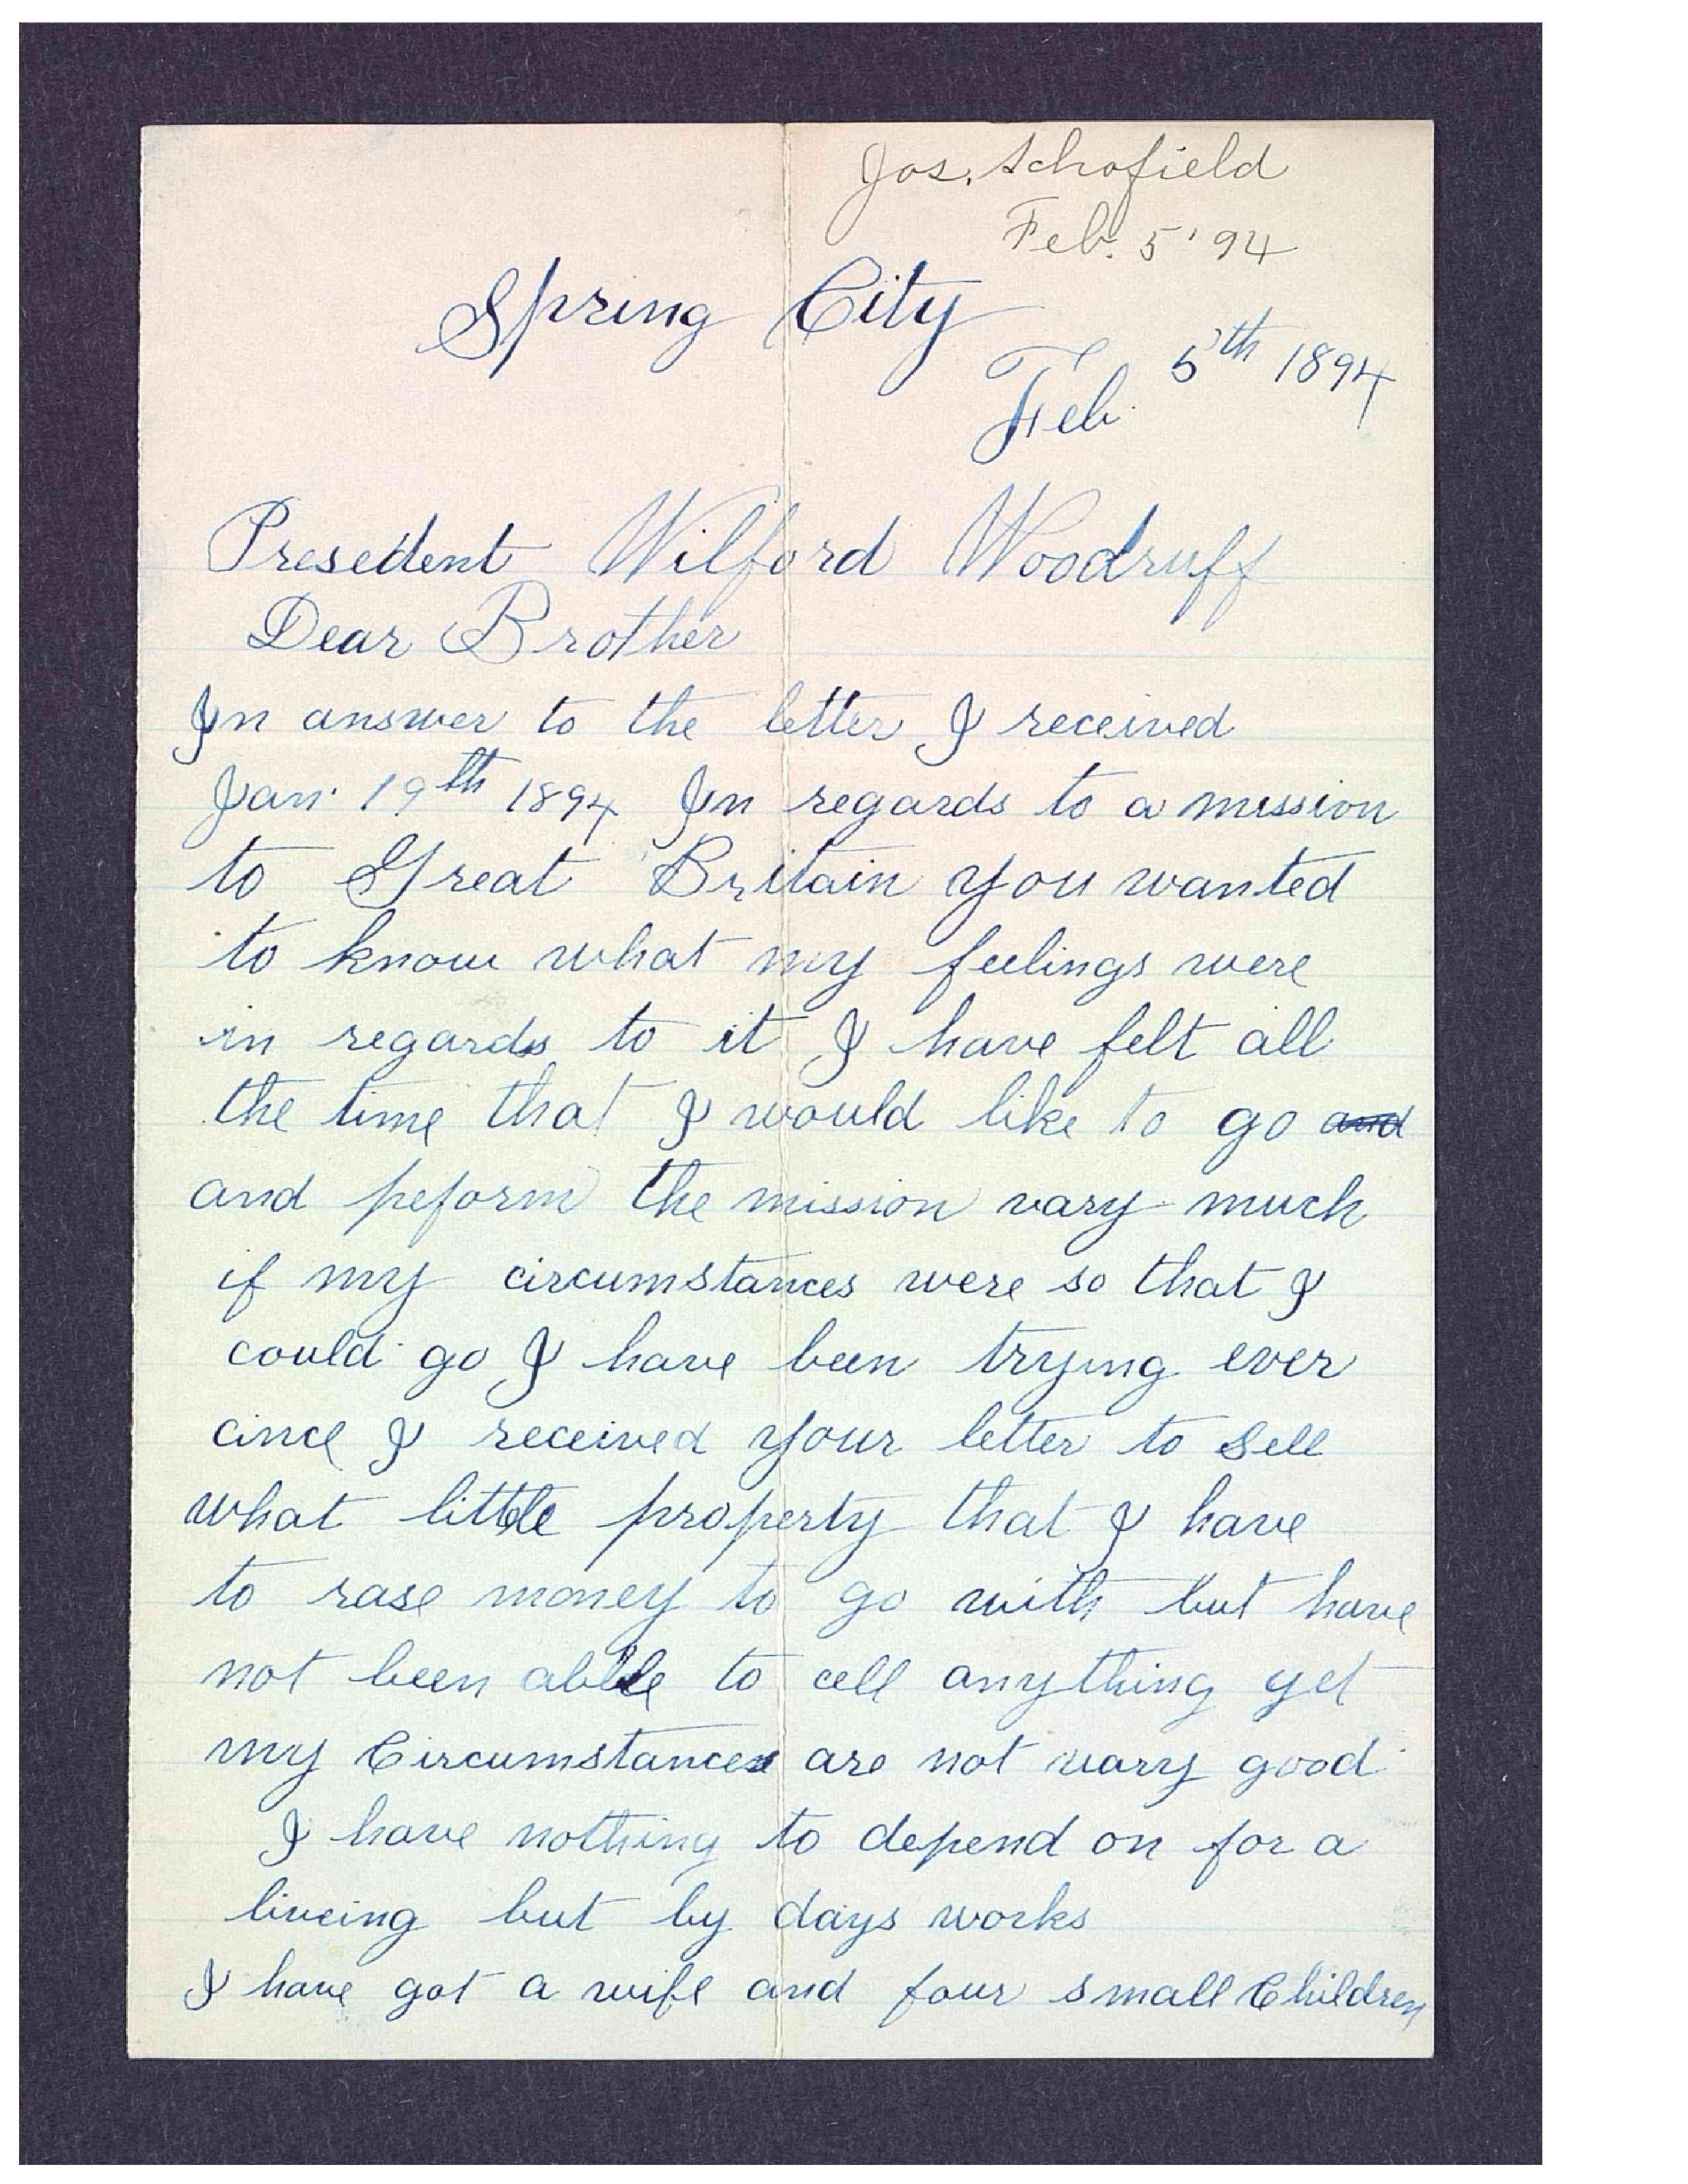 Jos. Schofield
Feb. 5 '94
Spring City
Feb. 5th 1894
Presedent Wilford Woodruff
Dear Brother
In answer to the letter I received
Jan. 19th 1894 In regards to a mission
to Great Britain you wanted
to know what my feelings were
in regards to it I have felt all
the time that I would like to go and
and peform the mission vary much
if my circumstances were so that I
could go I have been trying ever
cince I received your letter to sell
what little property that I have
to rase money to go with but have
not been able to cell anything yet
my Circumstances are not vary good
I have nothing to depend on for a
liveing but by days works
I have got a wife and four small Children